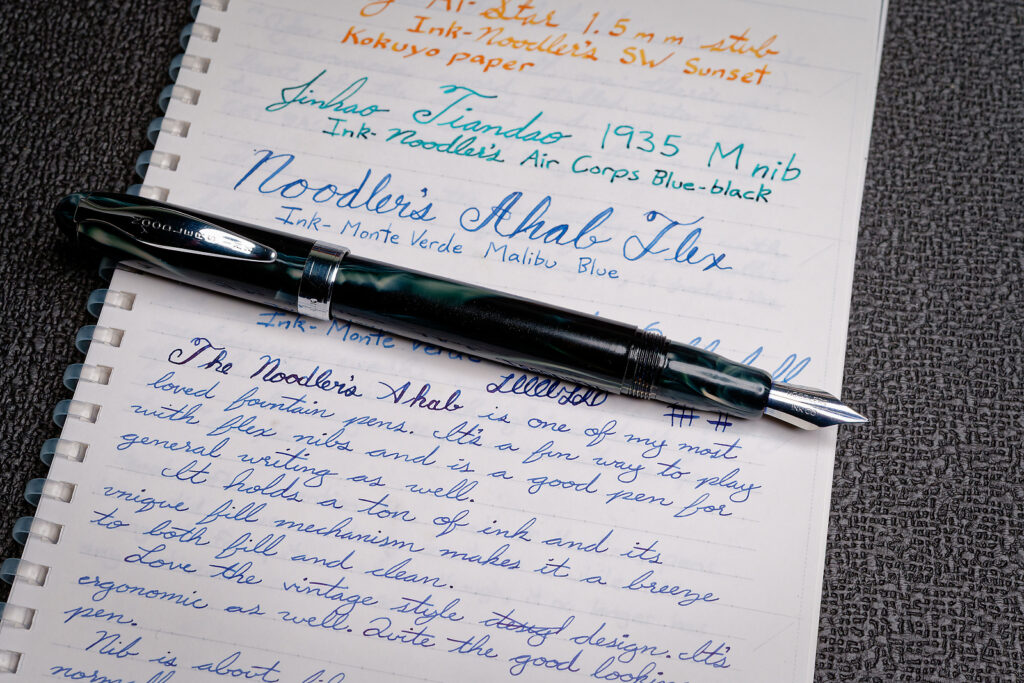 Al-Star 1.5mm stub
Ink-Noodler's SW Sunset
Kokuyo paper
Jinhao Tiandao 1935 M nib
Ink-Noodler's Air Corps Blue-black
Noodler's Ahab Flex
Ink-Monte Verde Malibu Blue
Ink-Monte Verde
The Noodler's Ahab is one of my most
loved fountain pens. It's a fun way to play
with flex nibs and is a good pen for
general writing as well.
It holds a ton of ink and its
unique fill mechanism makes it a breeze
to both fill and clean.
Love the vintage style design. It's
ergonomic as well. Quite the good looking
pen.
Nib is about